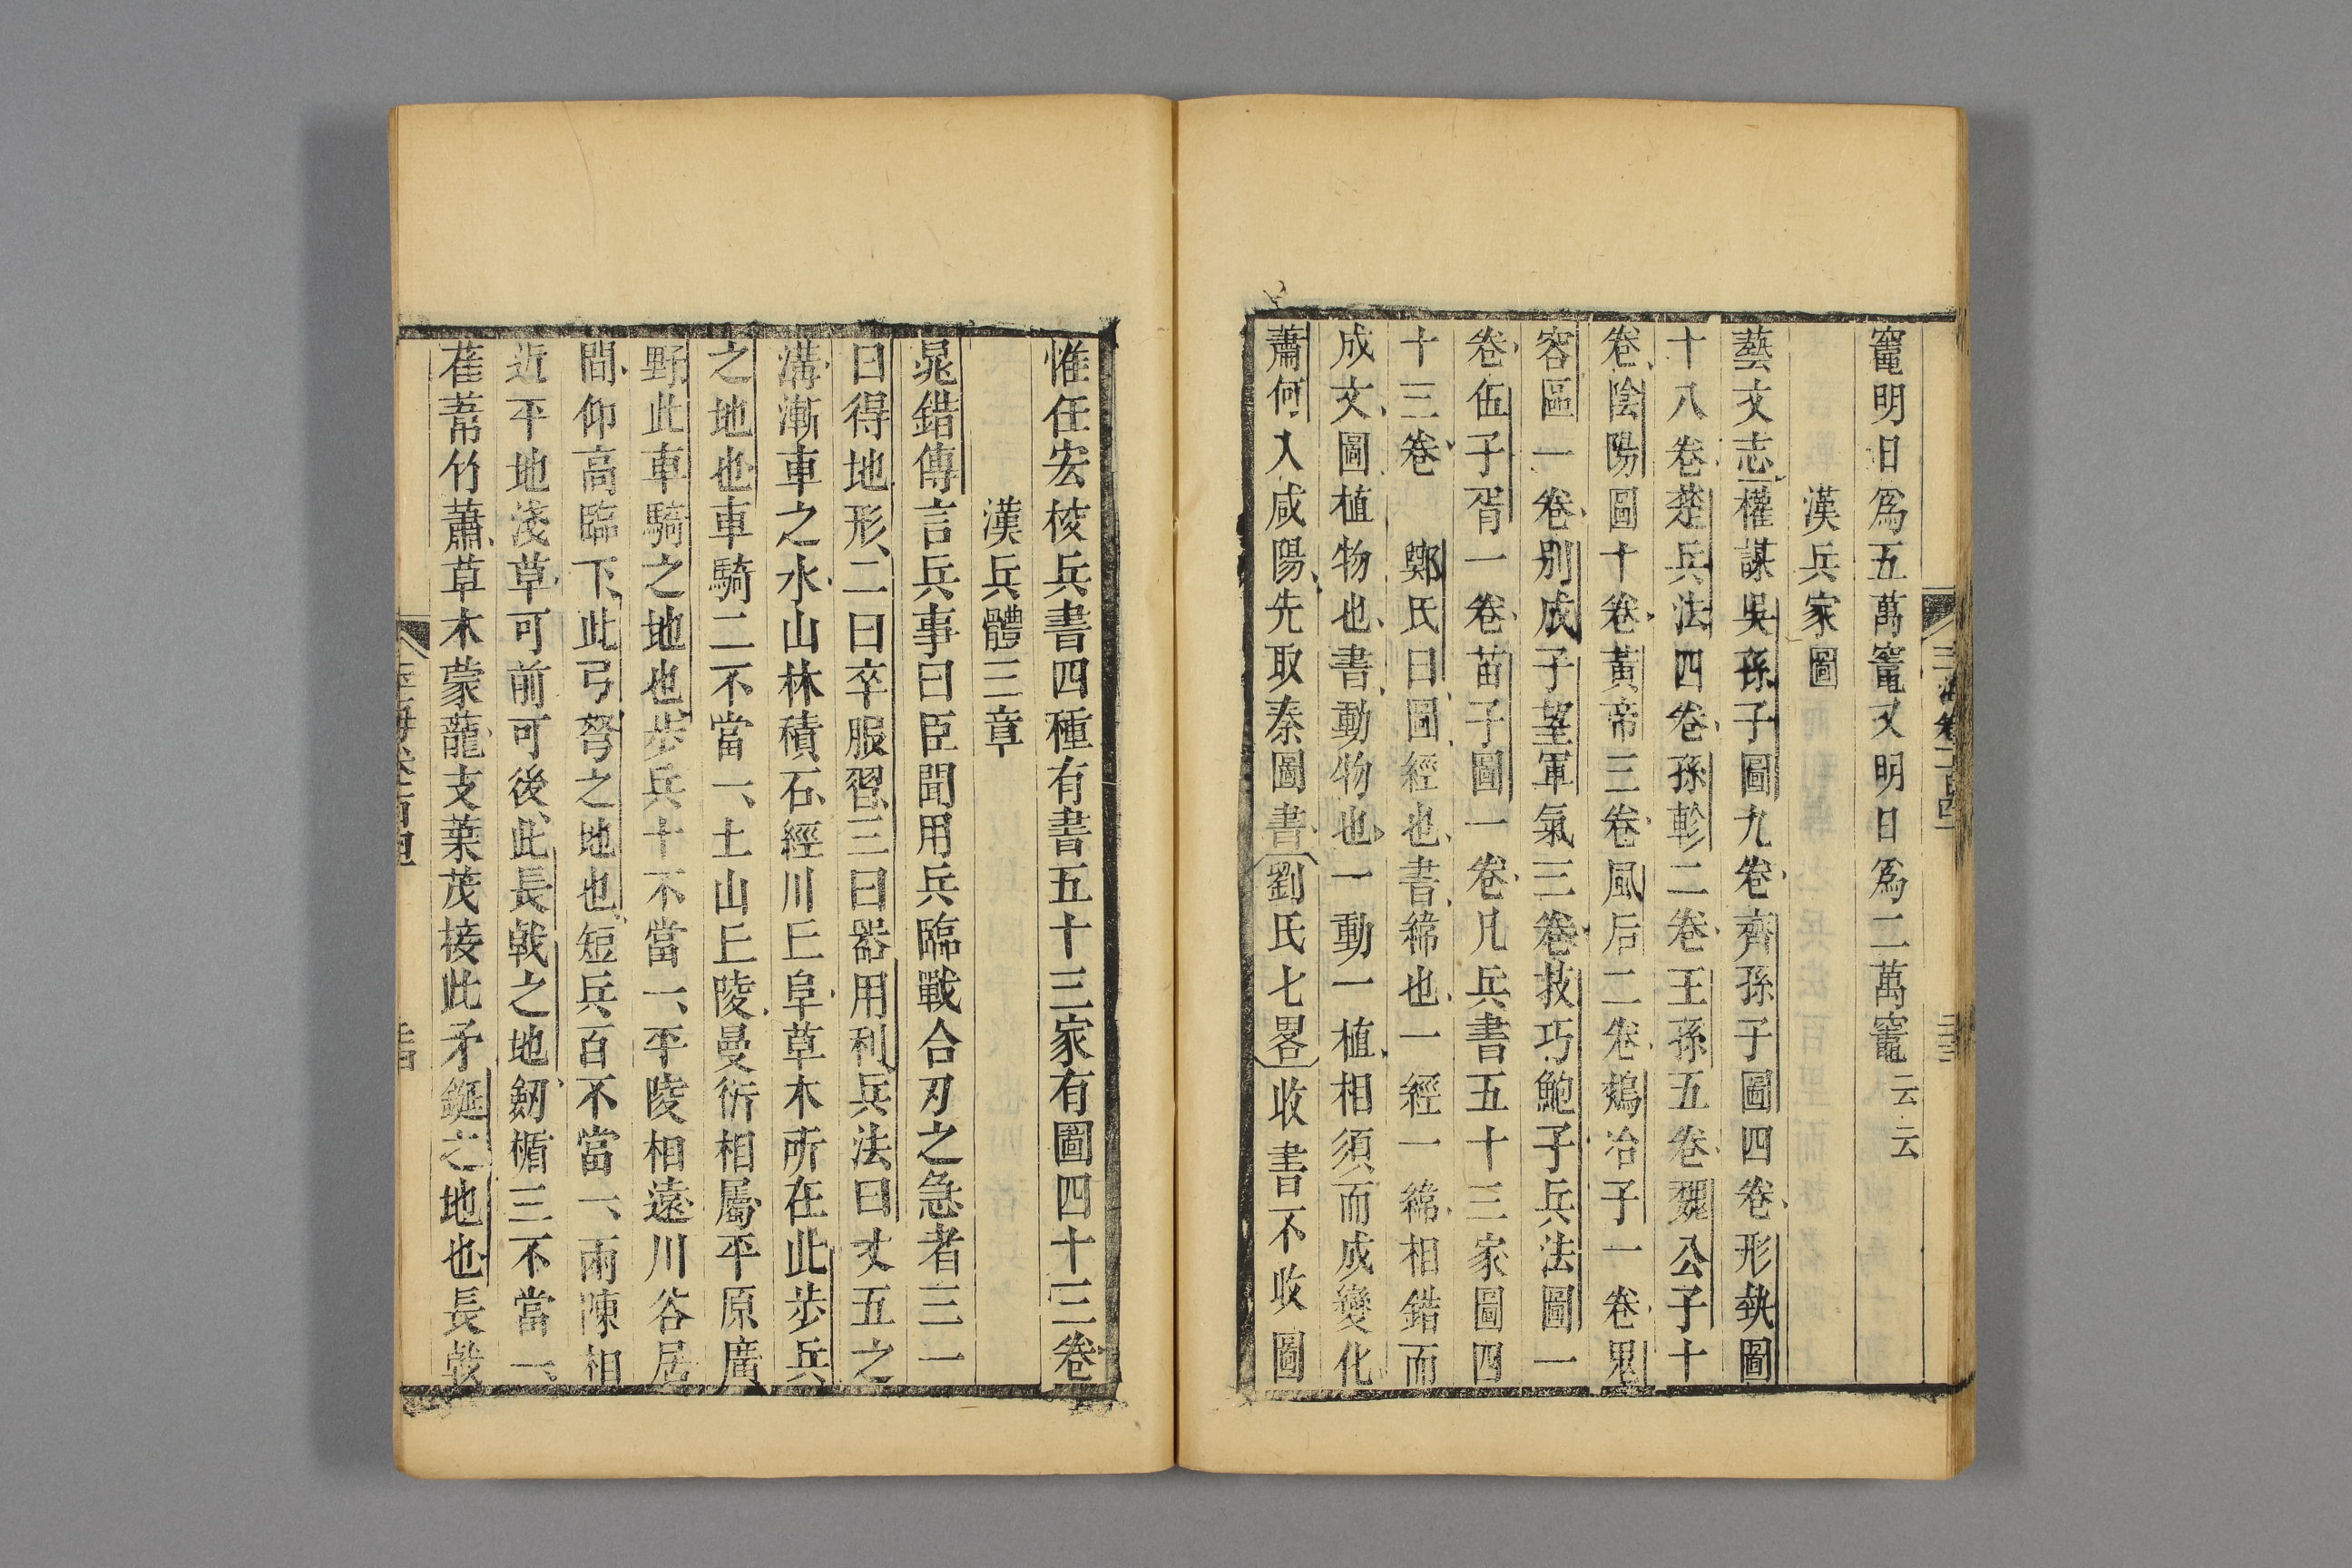 竈明日爲五萬竈又明日爲二萬竈云云
漢兵家圖
藝文志權謀吳孫子圖九卷齊孫子圖四卷形埶圖
十八卷楚兵法四卷孫軫二卷王孫五卷魏公子十
卷陰陽圖十卷黃帝三卷風后二卷鵊冶子一卷鬼
容區一卷别成子望軍氣三卷技巧鮑子兵法圖一
卷伍子胥一卷苗子圖一卷凡兵書五十三家圖四
十三卷 鄭氏曰圖經也書緯也一經一緯相錯而
成文圖植物也書動物也一動一植相須而成變化
蕭何入咸陽先取秦圖書劉氏七畧收書不收圖
惟任宏校兵書四種有書五十三家有圖四十三卷
漢兵體三章
晁錯傳言兵事曰臣聞用兵臨戰合刃之急者三一
曰得地形二曰卒服習三曰器用利兵法曰丈五之
溝漸車之水山林積石經川丘阜草木所在此步兵
之地也車騎二不當一土山丘陵曼衍相屬平原廣
野此車騎之地也步兵十不當一平陵相遠川谷居
間仰高臨下此弓弩之地也短兵百不當一兩陳相
近平地淺草可前可後此長戟之地劒楯三不當一
萑葦竹蕭草木蒙蘢支葉茂接此矛鋋之地也長戟